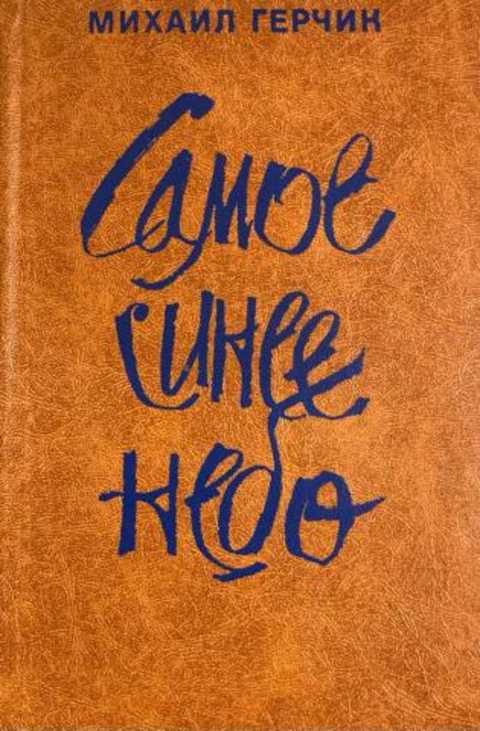 МИХАИЛ ГЕРЧИК
Самое
синее
небо